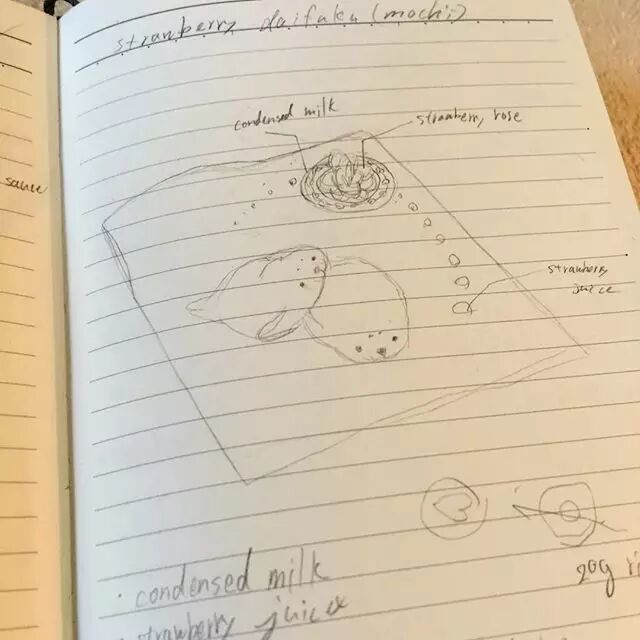 strawberry daifuku (mochi)
condensed milk
strawberry rose
sauce
strawberry
juice
20g
• condensed milk
strawberry juice